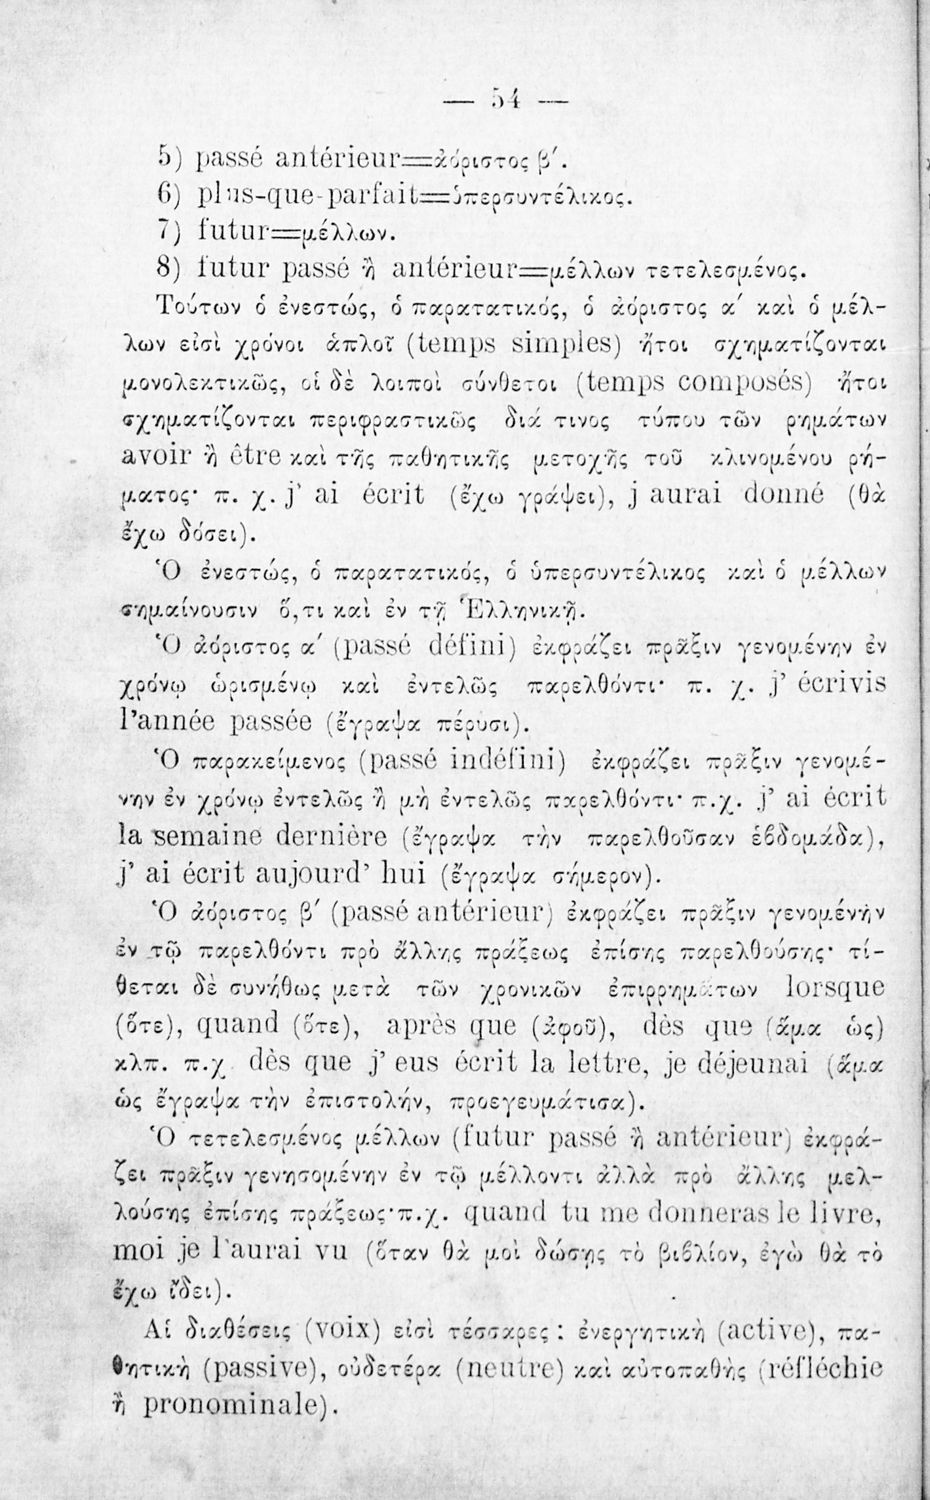 — 54 —
5) passé antérieur=ἀόριστος β΄.
6) plus-que-parfait=ὑπερσυντέλικος.
7) futur=μέλλων.
8) futur passé ἢ antérieur=μέλλων τετελεσμένος.
Τούτων ὁ ἐνεστώς, ὁ παρατατικός, ὁ ἀόριστος α΄ καὶ ὁ μέλ-
λων εἰσὶ χρόνοι ἁπλοῖ (temps simples) ἤτοι σχηματίζονται
μονολεκτικῶς, οἱ δὲ λοιποὶ σύνθετοι (temps composés) ἤτοι
σχηματίζονται περιφραστικῶς διά τινος τύπου τῶν ρημάτων
avoir ἢ être καὶ τῆς παθητικῆς μετοχῆς τοῦ κλινομένου ρή-
ματος· π. χ. j' ai écrit (ἔχω γράψει), j aurai donné (θὰ
ἔχω δόσει).
Ὁ ἐνεστώς, ὁ παρατατικός, ὁ ὑπερσυντέλικος καὶ ὁ μέλλων
σημαίνουσιν ὅ,τι καὶ ἐν τῇ Ἑλληνικῇ.
Ὁ ἀόριστος α΄ (passé défini) ἐκφράζει πρᾶξιν γενομένην ἐν
χρόνῳ ὡρισμένῳ καὶ ἐντελῶς παρελθόντι· π. χ. j' écrivis
l'année passée (ἔγραψα πέρυσι).
Ὁ παρακείμενος (passé indéfini) ἐκφράζει πρᾶξιν γενομέ-
νην ἐν χρόνῳ ἐντελῶς ἢ μὴ ἐντελῶς παρελθόντι· π.χ. j' ai écrit
la semaine dernière (ἔγραψα τὴν παρελθοῦσαν ἑβδομάδα),
j' ai écrit aujourd' hui (ἔγραψα σήμερον).
Ὁ ἀόριστος β΄ (passé antérieur) ἐκφράζει πρᾶξιν γενομένην
ἐν τῷ παρελθόντι πρὸ ἄλλης πράξεως ἐπίσης παρελθούσης· τί-
θεται δὲ συνήθως μετὰ τῶν χρονικῶν ἐπιρρημάτων lorsque
(ὅτε), quand (ὅτε), après que (ἀφοῦ), dès que (ἅμα ὡς)
κλπ. π.χ dès que j' eus écrit la lettre, je déjeunai (ἅμα
ὡς ἔγραψα τὴν ἐπιστολήν, προεγευμάτισα).
Ὁ τετελεσμένος μέλλων (futur passé ἢ antérieur) ἐκφρά-
ζει πρᾶξιν γενησομένην ἐν τῷ μέλλοντι ἀλλὰ πρὸ ἄλλης μελ-
λούσης ἐπίσης πράξεως·π.χ. quand tu me donneras le livre,
moi je l'aurai vu (ὅταν θὰ μοὶ δώσῃς τὸ βιβλίον, ἐγὼ θὰ τὸ
ἔχω ἴδει).
Αἱ διαθέσεις (voix) εἰσὶ τέσσαρες : ἐνεργητικὴ (active), πα-
θητικὴ (passive), οὐδετέρα (neutre) καὶ αὐτοπαθὴς (réfléchie
ἢ pronominale).